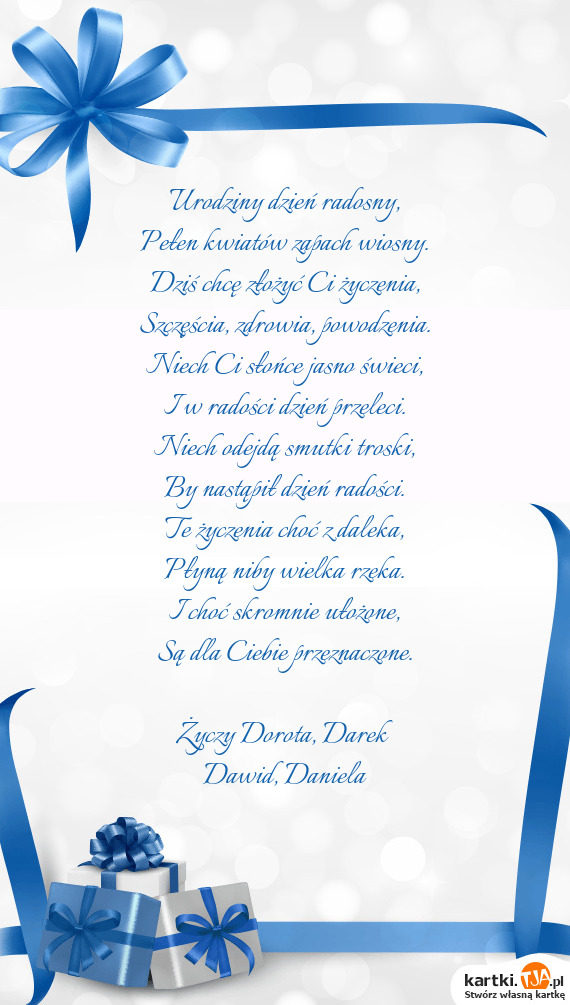 Urodziny dzień radosny,
Pełen kwiatów zapach wiosny.
Dziś chcę złożyć Ci życzenia,
Szczęścia, zdrowia, powodzenia.
Niech Ci słońce jasno świeci,
I w radości dzień przeleci.
Niech odejdą smutki troski,
By nastąpił dzień radości.
Te życzenia choć z daleka,
Płyną niby wielka rzeka.
I choć skromnie ułożone,
Są dla Ciebie przeznaczone.
Życzy Dorota, Darek
Dawid, Daniela
kartki.TJA.pl
Stwórz własną kartkę